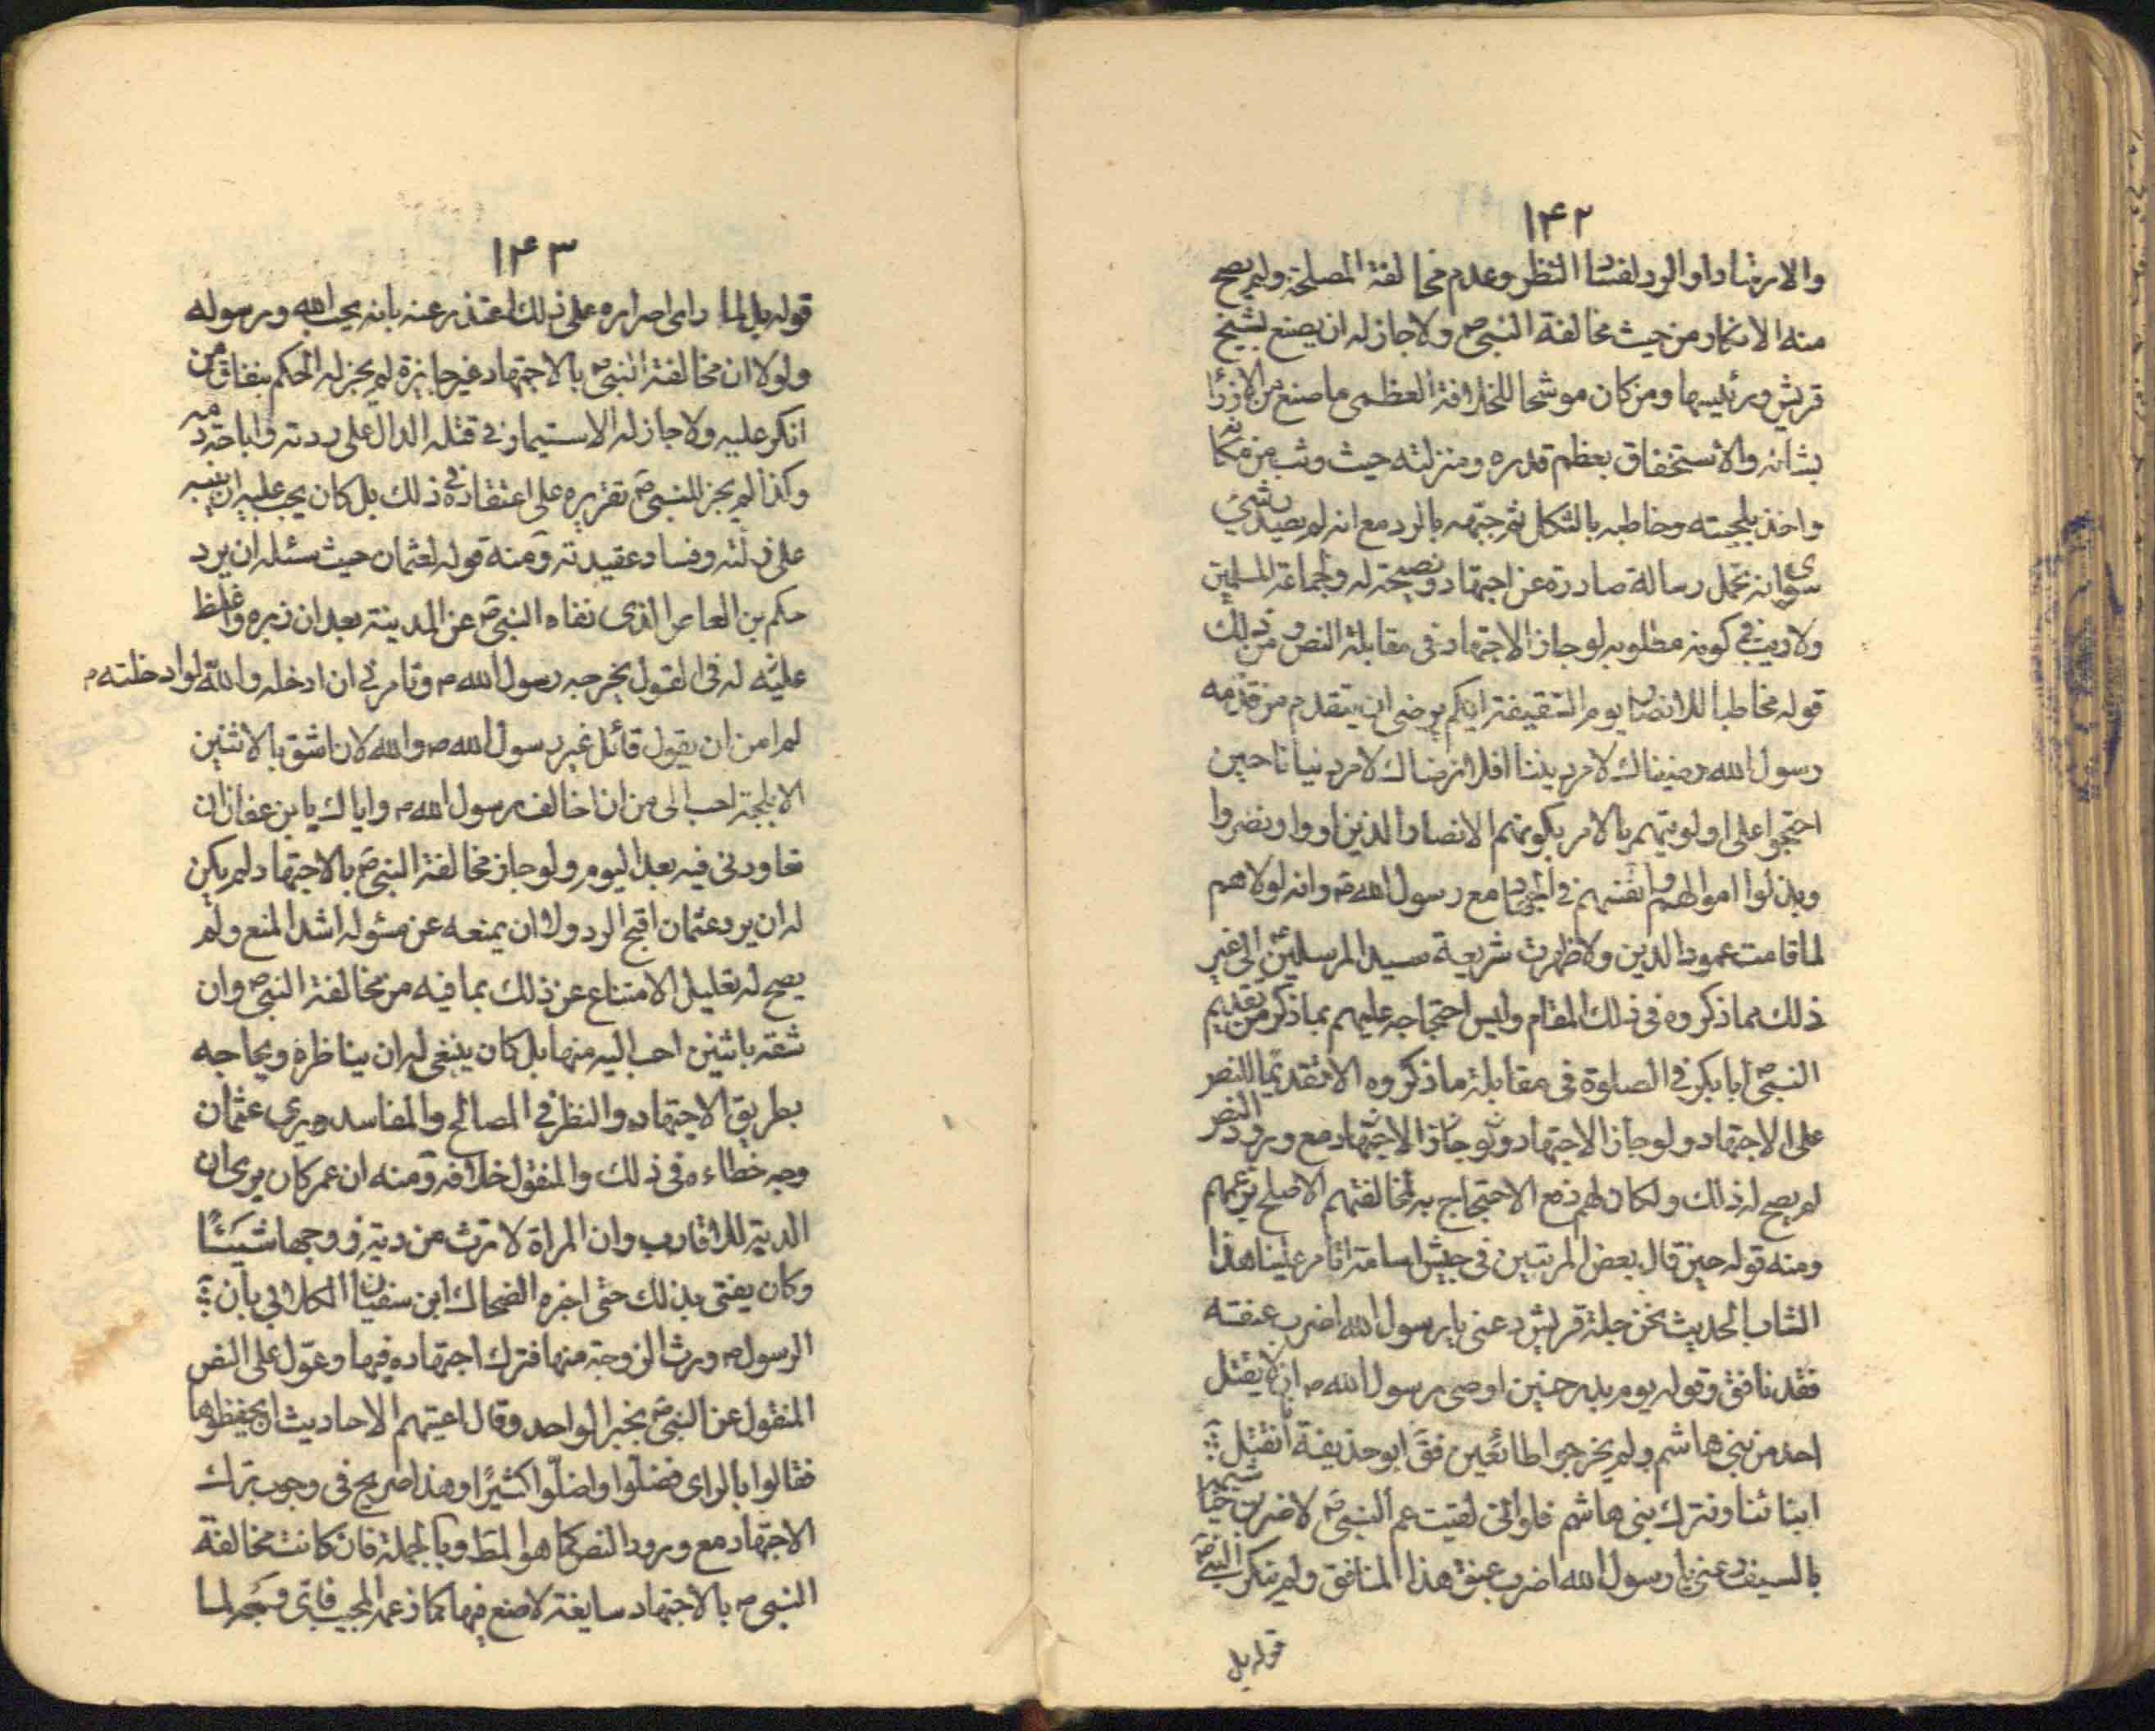 ۱۴۲
والارشاد او الرد لفساد النظر وعدم مخالفة المصلحة ولم يصح
منه الانكار من حيث مخالفة النبى ص ولا جاز له ان يصنع بشيخ
قريش ورئيسها ومن كان موشحا للخلافة العظمى ما صنع من الازراء
بشانه والاستخفاف بعظم قدره ومنزلته حيث وثب من مكانه
واخذ بلحيته وخاطبه بالثكل ثم جبهه بالرد مع انه لم يصدر شىء
سوى انه تحمل رسالة صادرة عن اجتهاد ونصيحة له ولجماعة المسلمين
ولا ريب فى كونه مطلوبه لو جاز الاجتهاد فى مقابلة النص ومن ذلك
قوله مخاطبا للانصار يوم السقيفة ايكم يرضى ان يتقدم من قدمه
رسول الله رضيناك لامر ديننا افلا نرضاك لامر دنيانا حين
احتجوا على اولويتهم بالامر بكونهم الانصار الذين اووا ونصروا
وبذلوا اموالهم وانفسهم فى الجهاد مع رسول الله ص وانه لولاهم
لما قامت عمود الدين ولا ظهرت شريعة سيد المرسلين الى غير
ذلك مما ذكروه فى ذلك المقام وليس احتجاجه عليهم بما ذكر من تقديم
النبى ص ابا بكر فى الصلوة فى مقابلة ما ذكروه الا تقديما للنص
على الاجتهاد ولو جاز الاجتهاد ولو جاز الاجتهاد مع ورود النص
لم يصح له ذلك ولكان لهم دفع الاحتجاج به لمخالفتهم الاصلح بزعمهم
ومنه قوله حين قال بعض المرتبين فى جيش اسامة اتامر علينا هذا
الشاب الحديث نحن جلة قريش دعنى يا رسول الله اضرب عنقه
فقد نافق وقوله يوم بدر حنين اوصى رسول الله ص ان لا يقتل
احد من بنى هاشم ولم يخرجوا طائعين فق ابو حذيفة انقتل
ابنائنا ونترك بنى هاشم فلو انى لقيت عم النبى ص لاضربن خياشيمه
بالسيف دعنى يا رسول الله اضرب عنق هذا المنافق ولم ينكر النبى ص
قوله بل
۱۴۳
قوله بل لما راى اصراره على ذلك اعتذر عنه بانه يحب الله ورسوله
ولولا ان مخالفة النبى ص بالاجتهاد غير جائزة لم يجز له الحكم بنفاق من
انكر عليه ولا جاز له الاستيمار فى قتله الدال على ردته واباحة دمه
وكذا لم يجز للنبى ص تقريره على اعتقاده فى ذلك بل كان يجب عليه ان ينبه
على زلته وفساد عقيدته ومنه قوله لعثمان حيث سئله ان يرد
حكم بن العاص الذى نفاه النبى ص عن المدينة بعد ان زبره واغلظ
عليه له فى القول يخرجه رسول الله ص وتامرنى ان ادخله والله لو ادخلته م
لم امن ان يقول قائل غير رسول الله ص والله لان اشق باثنين
الابلجة احب الى من ان اخالف رسول الله ص واياك يا بن عفان ان
تعاودنى فيه بعد اليوم ولو جاز مخالفة النبى ص بالاجتهاد لم يكن
له ان يرد عثمان اقبح الرد ولا ان يمنعه عن مسئوله اشد المنع ولم
يصح له تعليل الامتناع عن ذلك بما فيه من مخالفة النبى ص وان
شقه باثنين احب اليه منها بل كان ينبغى له ان يناظره ويحاجه
بطريق الاجتهاد والنظر فى المصالح والمفاسد ويرى عثمان
وجه خطاءه فى ذلك والمنقول خلافه ومنه ان عمر كان يرى ان
الدية للاقارب وان المراة لا ترث من دية زوجها شيئا
وكان يفتى بذلك حتى اخبره الضحاك ابن سفيان الكلابى بان
الرسول ص ورث الزوجة منها فترك اجتهاده فيها وعول على النص
المنقول عن النبى ص بخبر الواحد وقال اعيتهم الاحاديث ان يحفظوها
فقالوا بالراى فضلوا واضلوا كثيرا وهذا صريح فى وجوب ترك
الاجتهاد مع ورود النص كما هو المط وبالجملة فان كانت مخالفة
النبى ص بالاجتهاد سايغة لا صنع فيها كما زعمه المجيب فاى وجه لما